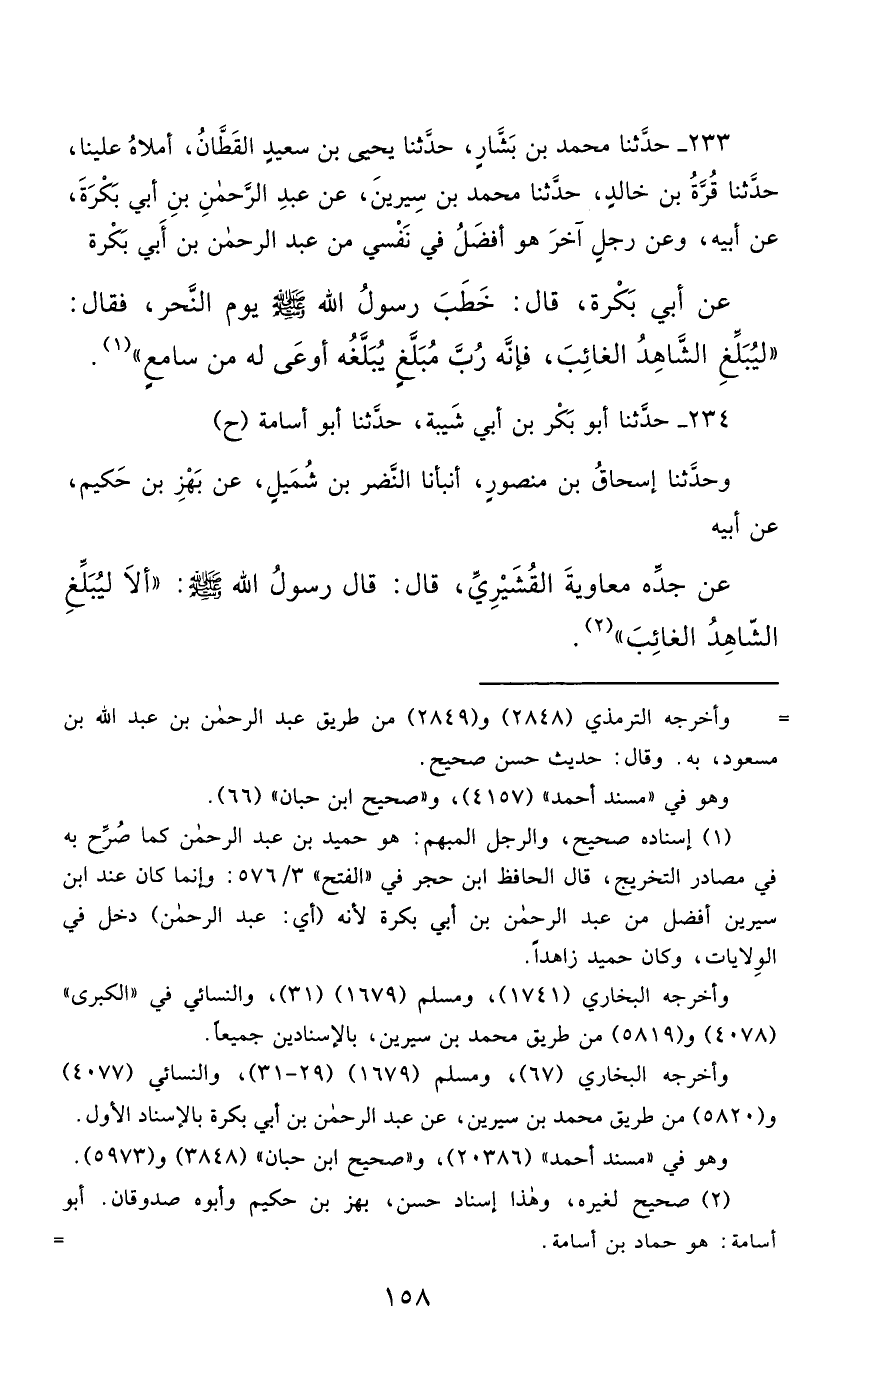 ٢٣٣ـ حدَّثنا محمد بن بَشَّارٍ، حدَّثنا يحيى بن سعيدٍ القَطَّانُ، أملاهُ علينا،
حدَّثنا قُرَّةُ بن خالدٍ، حدَّثنا محمد بن سِيرينَ، عن عبدِ الرَّحمٰنِ بنِ أبي بَكْرَةَ،
عن أبيه، وعن رجلٍ آخرَ هو أفضَلُ في نَفْسي من عبد الرحمٰن بن أَبي بَكْرة
عن أبي بَكْرة، قال: خَطَبَ رسولُ الله ﷺ يوم النَّحر، فقال:
«ليُبَلِّغِ الشَّاهِدُ الغائِبَ، فإنَّه رُبَّ مُبَلَّغٍ يُبَلَّغُه أوعَى له من سامعٍ»(١).
٢٣٤ـ حدَّثنا أبو بَكْر بن أبي شَيبة، حدَّثنا أبو أسامة (ح)
وحدَّثنا إسحاقُ بن منصورٍ، أنبأنا النَّضر بن شُمَيلٍ، عن بَهْزِ بن حَكيم،
عن أبيه
عن جدِّه معاويةَ القُشَيْرِيِّ، قال: قال رسولُ الله ﷺ: «ألاَ ليُبَلِّغِ
الشّاهِدُ الغائِبَ»(٢).
= وأخرجه الترمذي (٢٨٤٨) و(٢٨٤٩) من طريق عبد الرحمٰن بن عبد الله بن
مسعود، به. وقال: حديث حسن صحيح.
وهو في «مسند أحمد» (٤١٥٧)، و«صحيح ابن حبان» (٦٦).
(١) إسناده صحيح، والرجل المبهم: هو حميد بن عبد الرحمٰن كما صُرِّح به
في مصادر التخريج، قال الحافظ ابن حجر في «الفتح» ٥٧٦/٣: وإنما كان عند ابن
سيرين أفضل من عبد الرحمٰن بن أبي بكرة لأنه (أي: عبد الرحمٰن) دخل في
الوِلايات، وكان حميد زاهداً.
وأخرجه البخاري (١٧٤١)، ومسلم (١٦٧٩) (٣١)، والنسائي في «الكبرى»
(٤٠٧٨) و(٥٨١٩) من طريق محمد بن سيرين، بالإسنادين جميعاً.
وأخرجه البخاري (٦٧)، ومسلم (١٦٧٩) (٢٩-٣١)، والنسائي (٤٠٧٧)
و(٥٨٢٠) من طريق محمد بن سيرين، عن عبد الرحمٰن بن أبي بكرة بالإسناد الأول.
وهو في «مسند أحمد» (٢٠٣٨٦)، و«صحيح ابن حبان» (٣٨٤٨) و(٥٩٧٣).
(٢) صحيح لغيره، وهٰذا إسناد حسن، بهز بن حكيم وأبوه صدوقان. أبو
أسامة: هو حماد بن أسامة. =
١٥٨